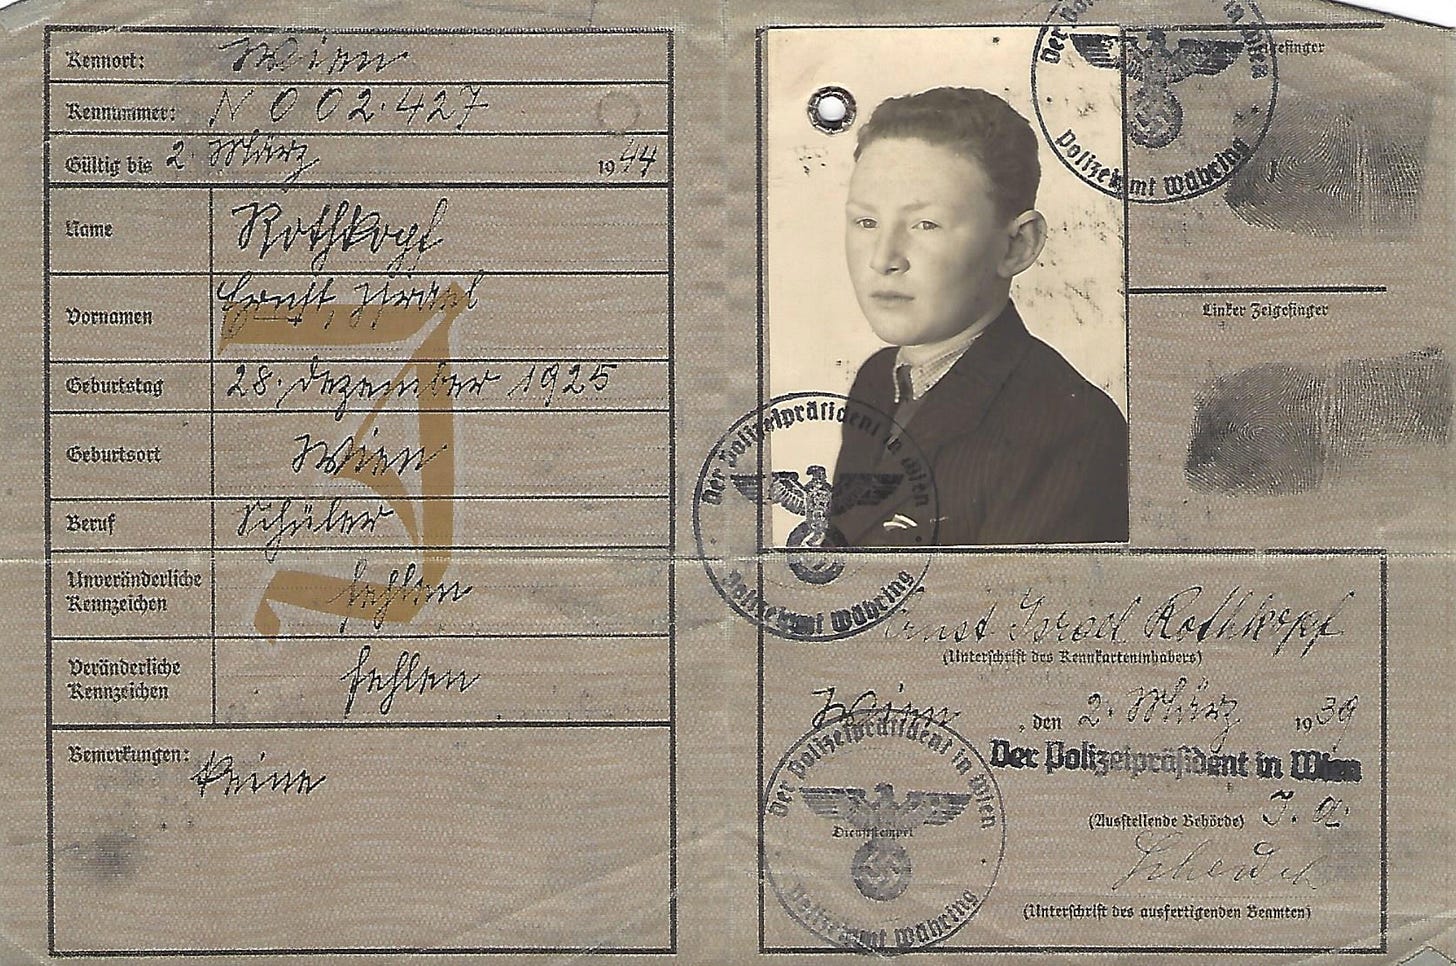 Kennort: Wien
Kennummer: N 002.427
Gültig bis 2. März 1944
Name Rothkopf
Vornamen Ernst, Israel
Geburtstag 28. Dezember 1925
Geburtsort Wien
Beruf Schüler
Unveränderliche Kennzeichen fehlen
Veränderliche Kennzeichen fehlen
Bemerkungen: keine
J
Zeigefinger
Der Polizeipräsident in Wien
Polizeiamt Währing
Linker Zeigefinger
Der Polizeipräsident in Wien
Polizeiamt Währing
Ernst Israel Rothkopf
(Unterschrift des Kennkarteninhabers)
Wien, den 2. März 1939
Der Polizeipräsident in Wien
J. A.
(Ausstellende Behörde)
Der Polizeipräsident in Wien
Dienststempel
Polizeiamt Währing
(Unterschrift des ausfertigenden Beamten)